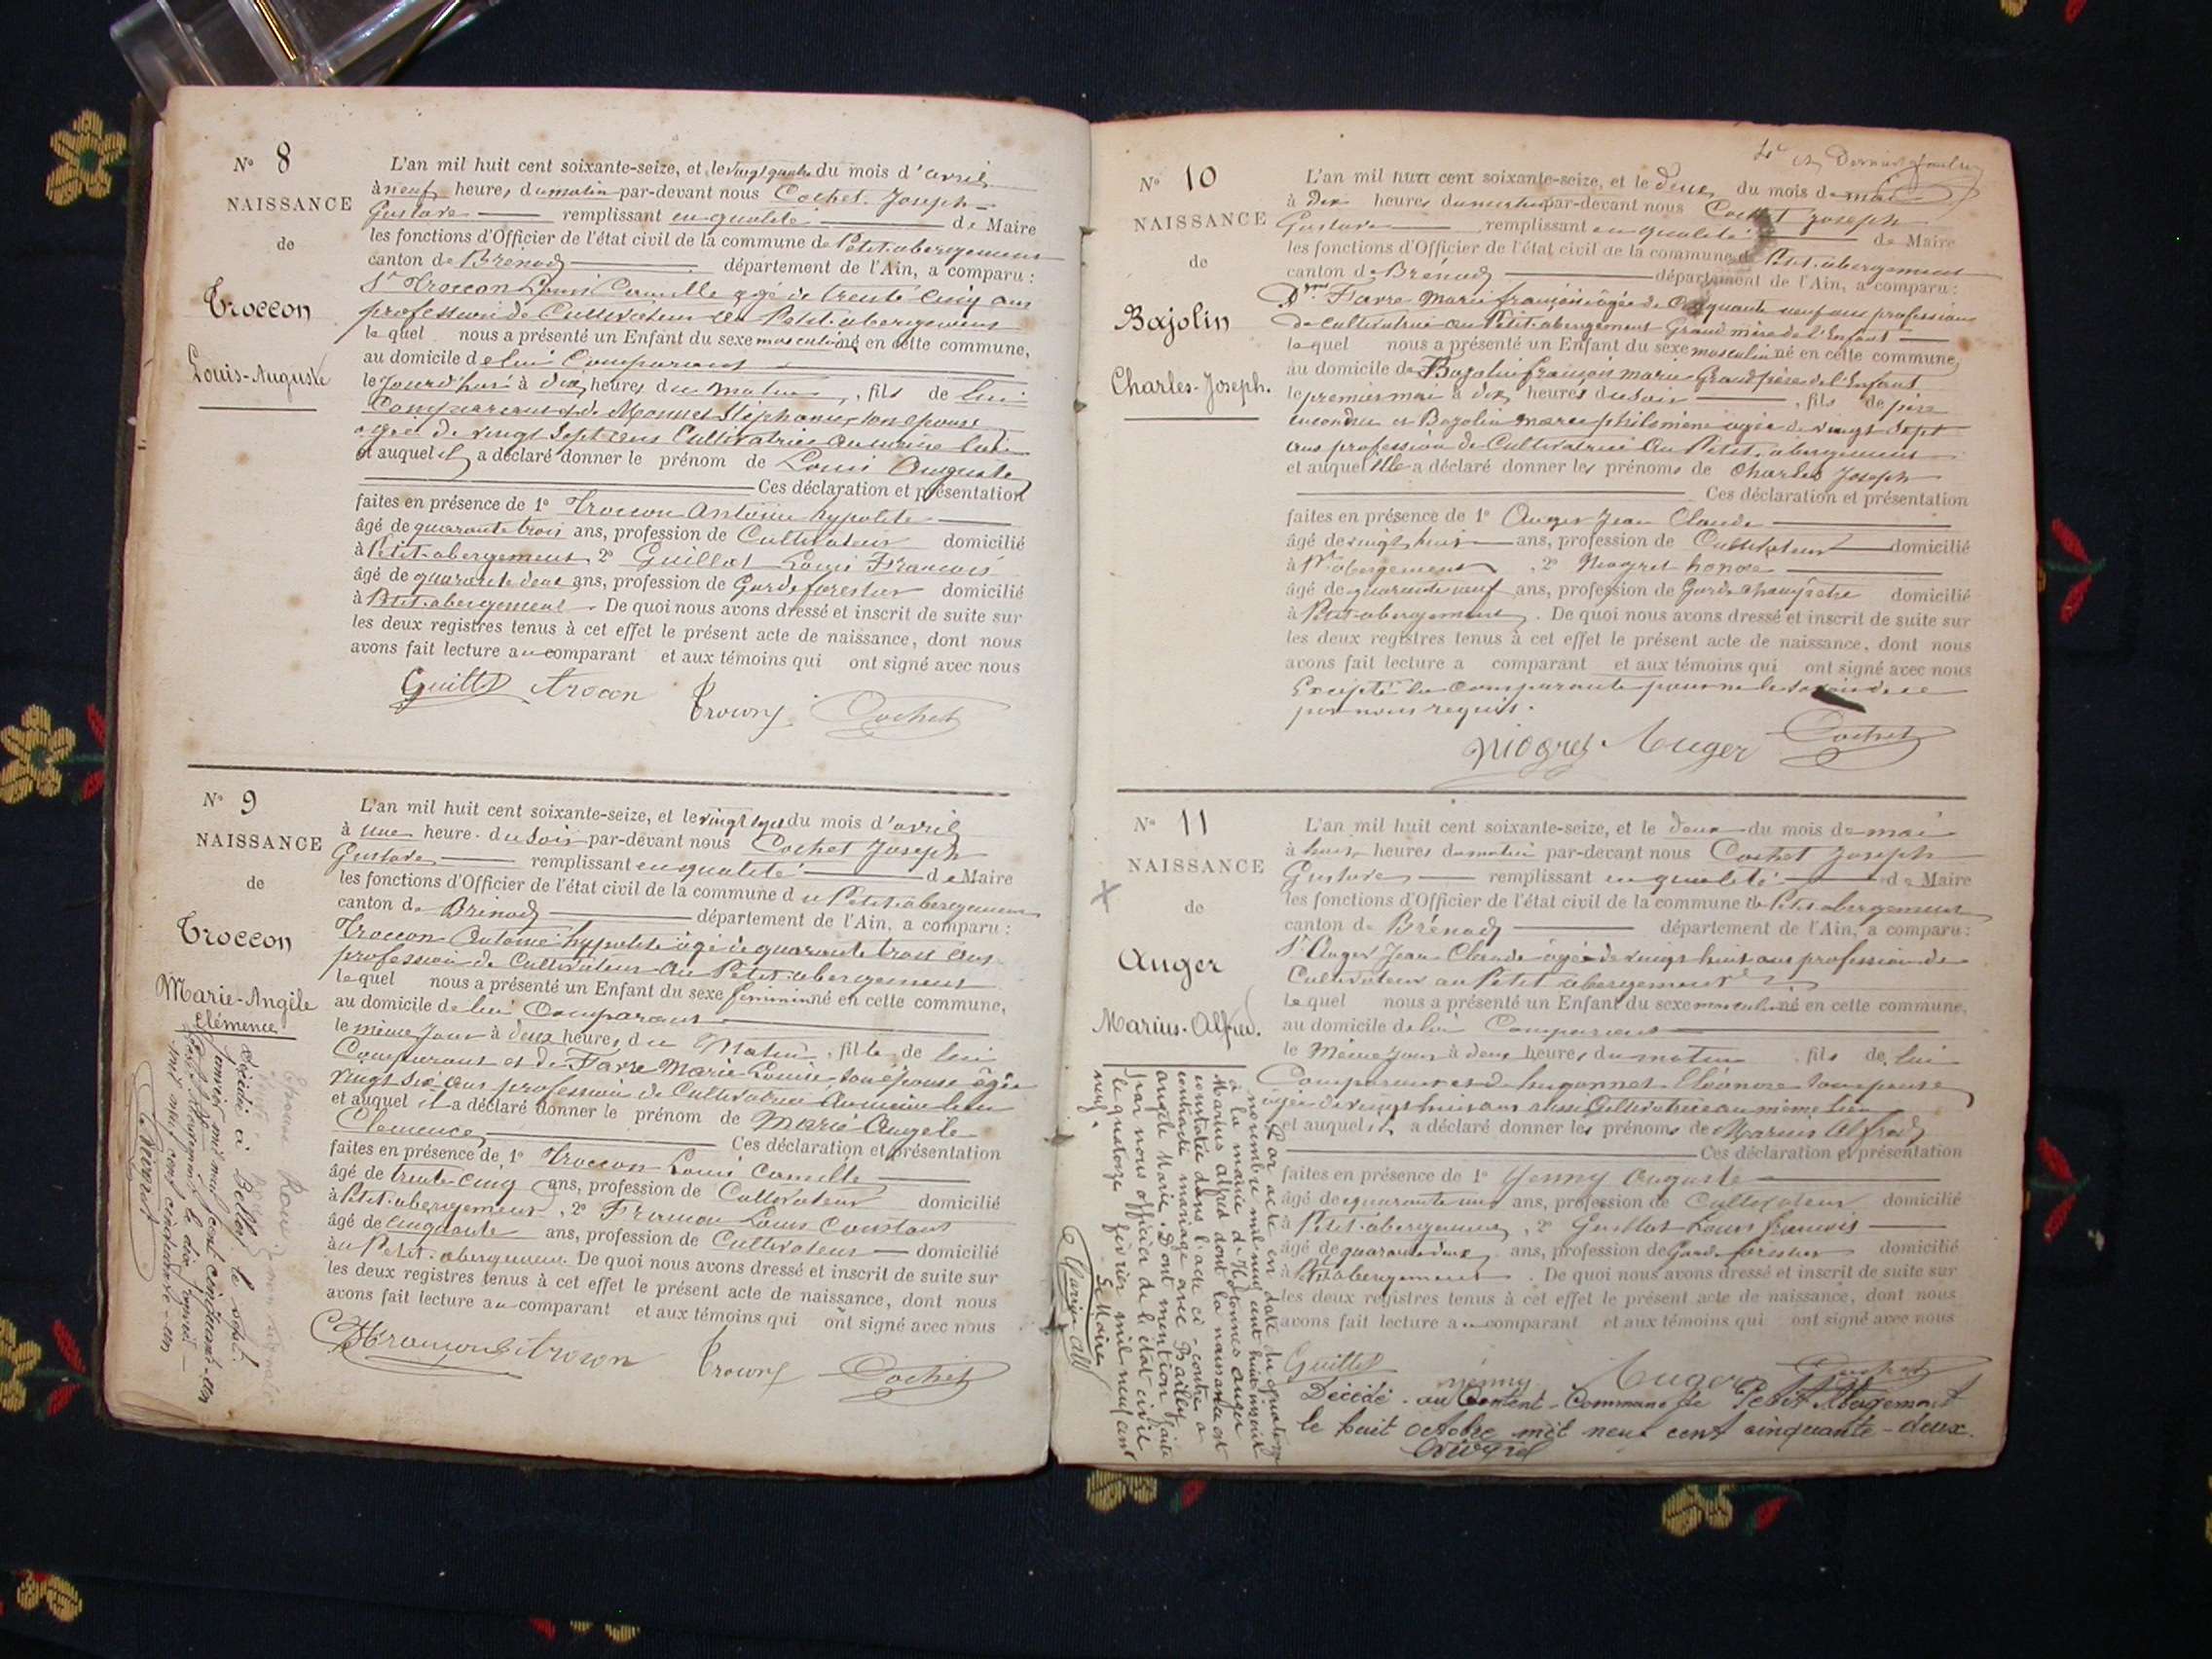 N° 8
NAISSANCE
de
Troccon
Louis-Auguste
L'an mil huit cent soixante-seize, et le vingt quatre du mois d'avril
à neuf heures du matin par-devant nous Cochet Joseph
Gustave remplissant en qualité de Maire
les fonctions d'Officier de l'état civil de la commune de Petit-abergement
canton de Brénod département de l'Ain, a comparu :
Sr Troccon Louis Camille agé de trente cinq ans
profession de Cultivateur au Petit-abergement
le quel nous a présenté un Enfant du sexe masculin né en cette commune,
au domicile de lui Comparant
le jourd'hui à dix heures du matin, fils de lui
Comparant et de Monnet Stéphanie, son épouse
agée de vingt sept ans Cultivatrice au même lieu
et auquel il a déclaré donner le prénom de Louis Auguste
Ces déclaration et présentation
faites en présence de 1° Troccon Antoine hypolite
âgé de quarante trois ans, profession de Cultivateur domicilié
à Petit-abergement 2° Guillot Louis François
âgé de quarante deux ans, profession de Garde forestier domicilié
à Petit-abergement. De quoi nous avons dressé et inscrit de suite sur
les deux registres tenus à cet effet le présent acte de naissance, dont nous
avons fait lecture au comparant et aux témoins qui ont signé avec nous
Guillot Trocon Cochet
N° 9
NAISSANCE
de
Troccon
Marie-Angèle
Clémence
L'an mil huit cent soixante-seize, et le vingt sept du mois d'avril
à une heure du soir par-devant nous Cochet Joseph
Gustave remplissant en qualité de Maire
les fonctions d'Officier de l'état civil de la commune du Petit-abergement
canton de Brénod département de l'Ain, a comparu :
Troccon Antoine hypolite âgé de quarante trois ans
profession de Cultivateur au Petit-abergement
le quel nous a présenté un Enfant du sexe féminin né en cette commune,
au domicile de lui Comparant
le même jour à deux heures du Matin, fille de lui
Comparant et de Favre Marie Louise, son épouse âgée
vingt six ans profession de Cultivatrice au même lieu
et auquel il a déclaré donner le prénom de Marie Angèle
Clemence Ces déclaration et présentation
faites en présence de 1° Troccon Louis Camille
âgé de trente cinq ans, profession de Cultivateur domicilié
à Petit-abergement, 2° Framon Louis Constant
âgé de cinquante ans, profession de Cultivateur domicilié
au Petit-abergement. De quoi nous avons dressé et inscrit de suite sur
les deux registres tenus à cet effet le présent acte de naissance, dont nous
avons fait lecture au comparant et aux témoins qui ont signé avec nous
Trocon Cochet
Décédée à Belley le sept
janvier mil neuf cent cinquante-un
Petit Abergement le dix janvier
mil neuf cent cinquante-un
N° 10
NAISSANCE
de
Bojolin
Charles-Joseph.
L'an mil huit cent soixante-seize, et le deux du mois de mai
à dix heures du matin par-devant nous Cochet Joseph
Gustave remplissant en qualité de Maire
les fonctions d'Officier de l'état civil de la commune de Petit-abergement
canton de Brénod département de l'Ain, a comparu :
Dme Favre Marie françoise âgée de cinquante neuf ans profession
de cultivatrice au Petit-abergement Grand mère de l'Enfant
le quel nous a présenté un Enfant du sexe masculin né en cette commune,
au domicile de Bojolin françois marie Grand père de l'Enfant
le premier mai à dix heures du soir, fils de père
inconnu et Bojolin marie philomène agée de vingt sept
ans profession de Cultivatrice au Petit-abergement
et auquel Elle a déclaré donner les prénoms de Charles Joseph
Ces déclaration et présentation
faites en présence de 1° Auger Jean Claude
âgé de vingt huit ans, profession de Cultivateur domicilié
à Pt abergement, 2° Niogret honoré
âgé de quarante neuf ans, profession de Garde champêtre domicilié
à Petit-abergement. De quoi nous avons dressé et inscrit de suite sur
les deux registres tenus à cet effet le présent acte de naissance, dont nous
avons fait lecture a comparant et aux témoins qui ont signé avec nous
Excepté la comparante pour ne le savoir de ce
par nous requis.
Niogret Auger Cochet
N° 11
NAISSANCE
de
Auger
Marius-Alfred.
L'an mil huit cent soixante-seize, et le deux du mois de mai
à huit heures du matin par-devant nous Cochet Joseph
Gustave remplissant en qualité de Maire
les fonctions d'Officier de l'état civil de la commune de Petit-abergement
canton de Brénod département de l'Ain, a comparu :
Sr Auger Jean Claude âgé de vingt huit ans profession de
Cultivateur au Petit abergement
le quel nous a présenté un Enfant du sexe masculin né en cette commune,
au domicile de lui Comparant
le Même jour à deux heures du matin, fils de lui
Comparant et de hugonnet Eléonore son épouse
agée de vingt huit ans aussi Cultivatrice au même lieu
et auquel il a déclaré donner les prénoms de Marius Alfred
Ces déclaration et présentation
faites en présence de 1° Yenny Auguste
âgé de quarante ans, profession de Cultivateur domicilié
à Petit-abergement, 2° Guillot Louis françois
âgé de quarante deux ans, profession de Garde forestier domicilié
à Petit abergement. De quoi nous avons dressé et inscrit de suite sur
les deux registres tenus à cet effet le présent acte de naissance, dont nous
avons fait lecture au comparant et aux témoins qui ont signé avec nous
Guillot Yenny Auger Cochet
Décédé au commune de Petit Abergement
le huit octobre mil neuf cent cinquante-deux.
Par acte en date du quatorze
novembre mil neuf cent huit inscrit
à la mairie de Hotonnes Auger
Marius Alfred dont la naissance est
constatée dans l'acte ci-contre a
contracté mariage avec Bailly
Angèle Marie. Dont mention faite
par nous officier de l'état civil
le quatorze février mil neuf cent
neuf.
Le Maire